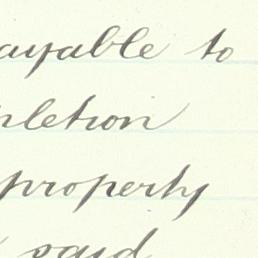 ayable to
pletion
property
said